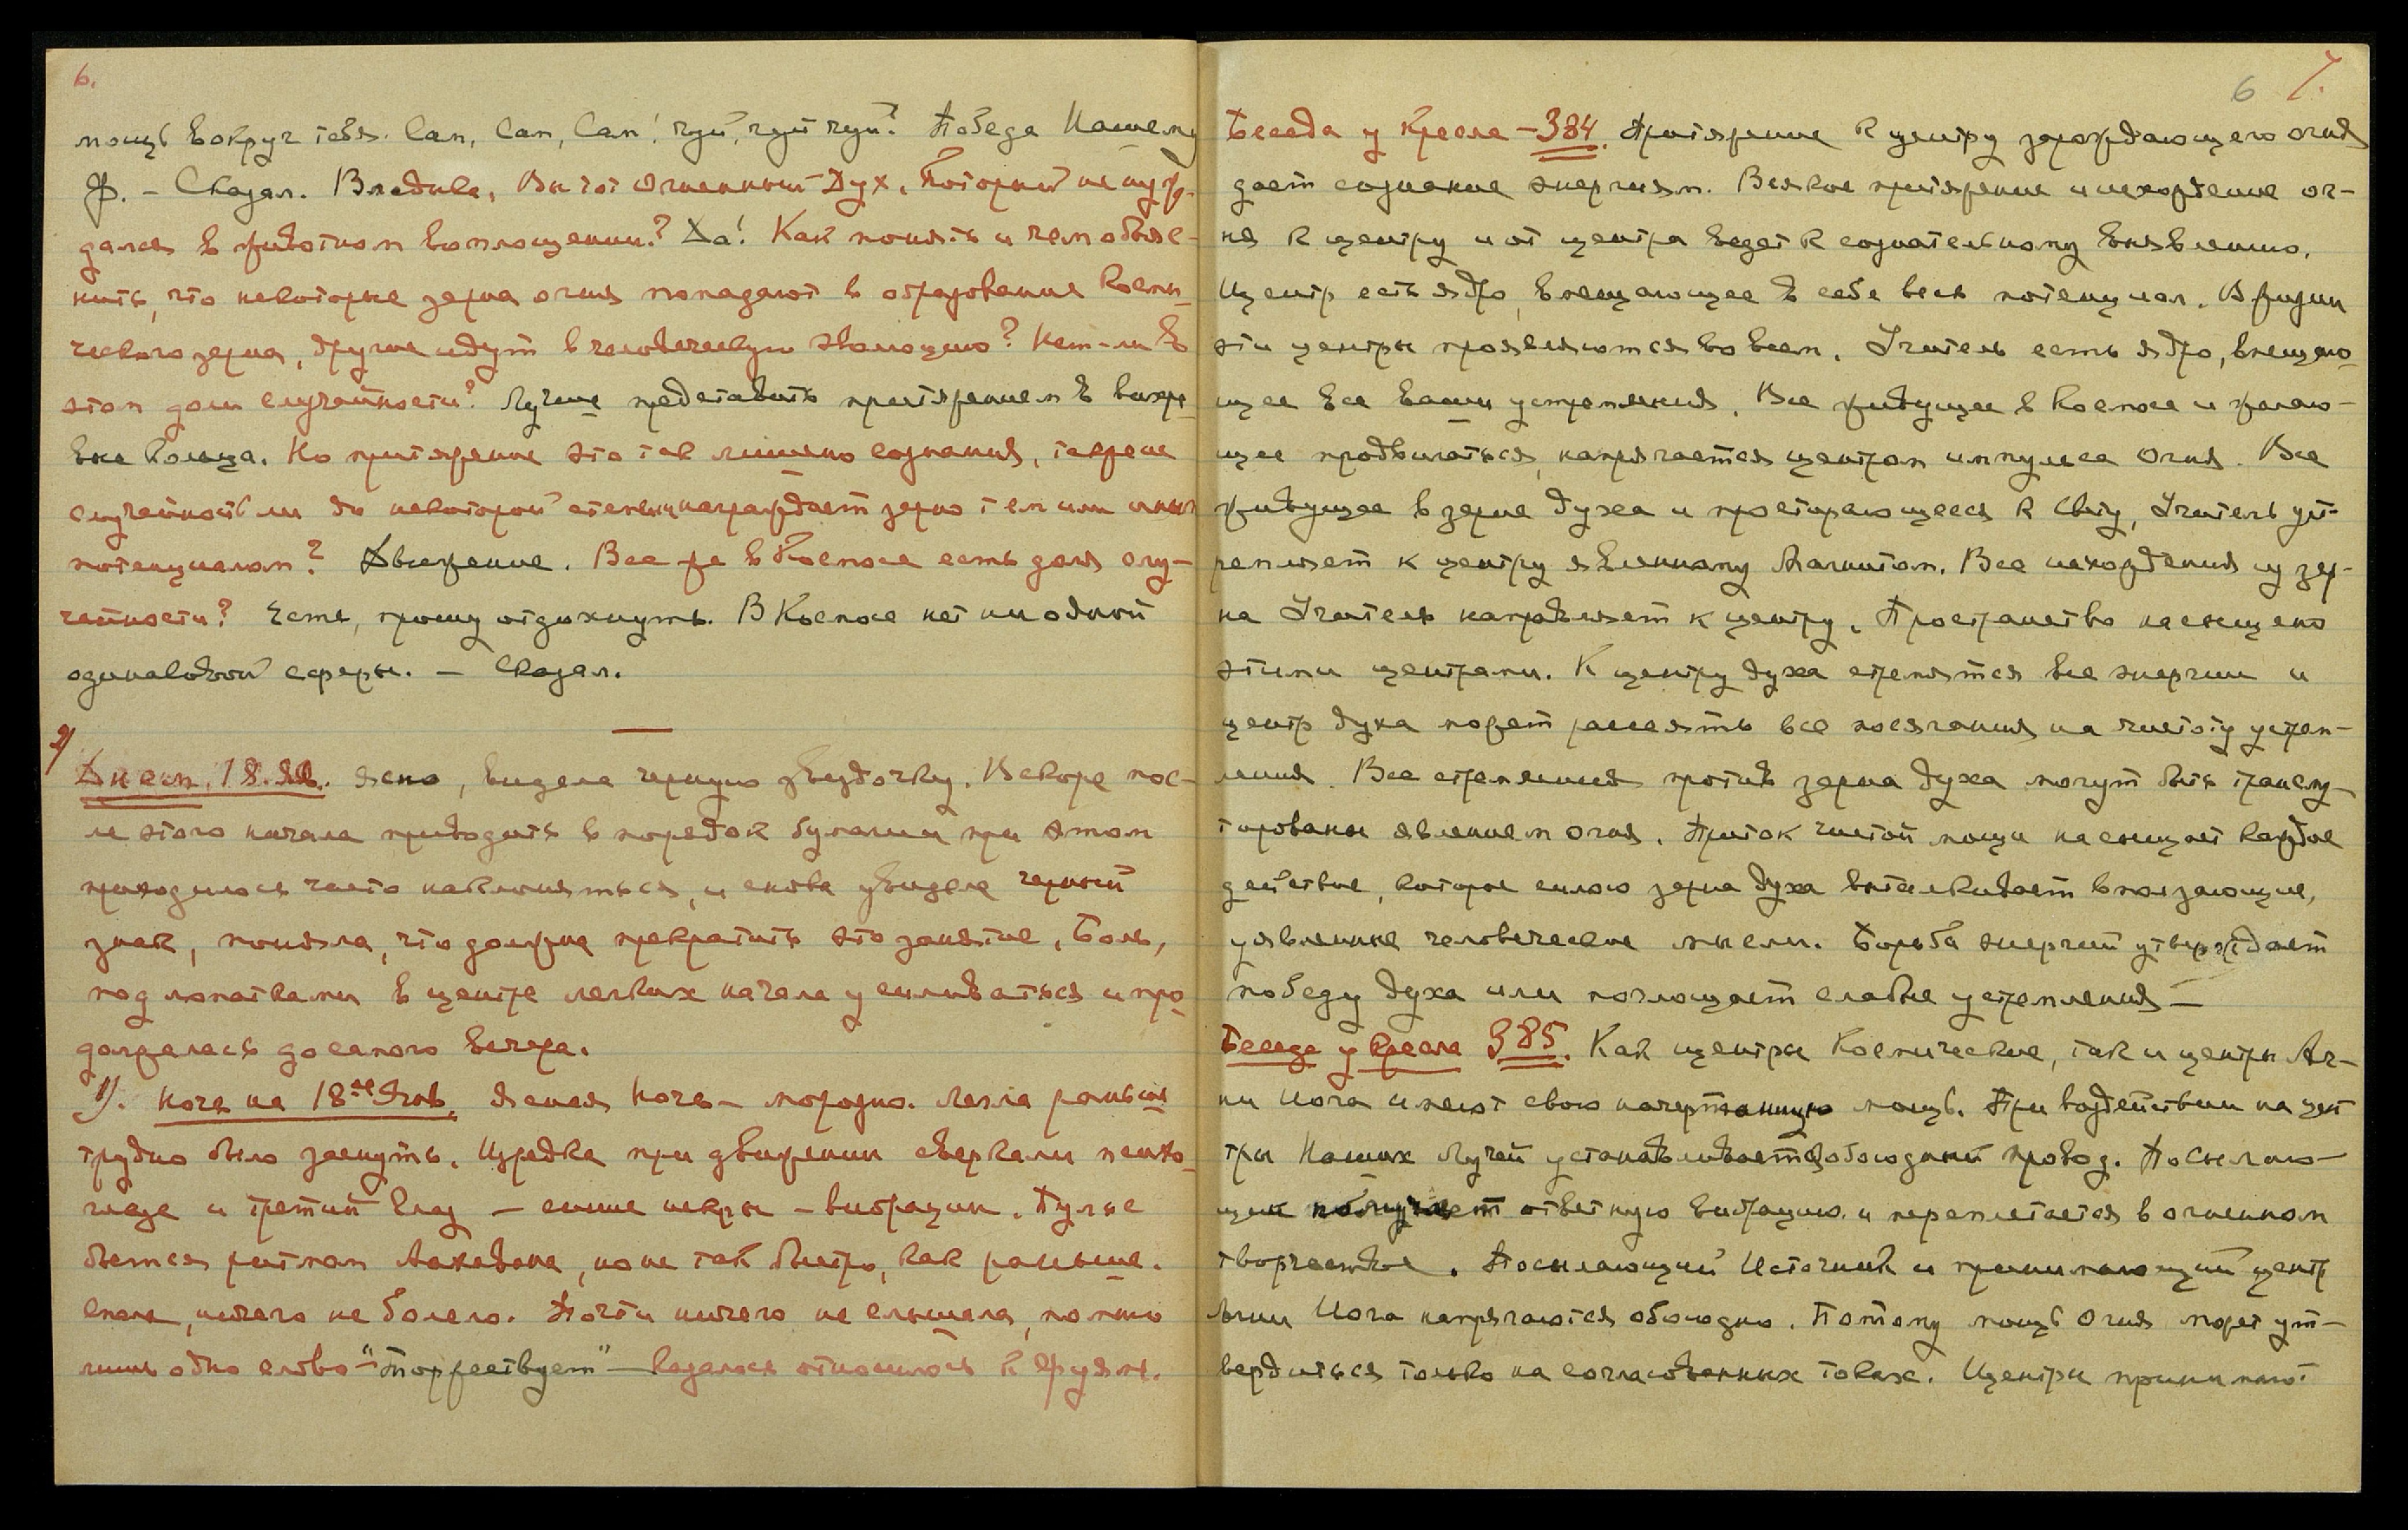 6.
мощь вокруг тебя. Сам, Сам, Сам! чуй, чуй чуй! Победа Нашему
Ф. – Сказал. Владыка, Вы тот Огненный Дух, Который не нуж-
дался в животном воплощении? Да! Как понять и чем объяс-
нить, что некоторые зерна огня попадают в образование Косми-
ческого зерна, другие идут в человеческую эволюцию? Нет-ли в
этом доли случайности? Лучше представить притяжением в вихре-
вые кольца. Но притяжение это так лишено сознания, так же не
случайность ли до некоторой степени награждает зерно тем или иным
потенциалом? Движение. Все же в Космосе есть доля слу-
чайности? Есть, прошу отдохнуть. В Космосе нет ни одной
одинаковой сферы. – Сказал.
2/
Днем, 18. Янв. Ясно, видела черную звездочку. Вскоре пос-
ле этого начала приводить в порядок бумаги и при этом
приходилось часто наклоняться, и снова увидела черный
знак, поняла, что должна прекратить это занятие. Боль,
под лопатками в центре легких начала усиливаться и про-
должалась до самого вечера.
1/. Ночь на 18-ое Янв. Ясная ночь – морозно. Легла раньше
трудно было заснуть. Изредка при движении сверкали пси
глаза и третий глаз – синие искры – вибрации. Пульс
бьется ритмом Анахаты, но не так быстро, как раньше.
спала, ничего не болело. Почти ничего не слышала, помню
лишь одно слово – "Торжествует" – казалось относилось к друзьям.
6 7.
Беседа у Кресла – 384. Притяжение к центру зарождающего огня
дает сознание энергиям. Всякое притяжение и исхождение ог-
ня к центру и от центра ведет к сознательному выявлению.
Центр есть ядро, вмещающее в себе весь потенциал. В жизни
эти центры проявляются во всем. Учитель есть ядро, вмещаю-
щее все ваши устремления. Все живущее в Космосе и желаю-
щее продвигаться, напрягается центром импульса огня. Все
живущее в зерне духа и простирающееся к Свету, Учитель уст-
ремляет к центру явленному Магнитом. Все исхождения из зер-
на Учитель направляет к центру. Пространство насыщено
этими центрами. К центру духа стремятся все энергии и
центр духа может рассеять все посягания на чистоту устрем-
ления. Все стремления против зерна духа могут быть трансму-
тированы явлением огня. Приток чистой мощи насыщает каждое
действие, которое силою зерна духа выталкивает вползающие,
уявленные человеческие мысли. Борьба энергий утверждает
победу духа или поглощает слабые устремления –
Беседа у Кресла 385. Как центры Космические, так и центры Аг-
ни Йога имеют свою начертанную мощь. При воздействии на цен
тры Наших Лучей устанавливается обоюдный провод. Посылаю-
щик получает ответную вибрацию и переплетается в огненном
творчестве. Посылающий Источник и принимающий центр
Агни Йога напрягаются обоюдно. Потому мощь Огня может ут-
вердиться только на согласованных токах. Центры принимают